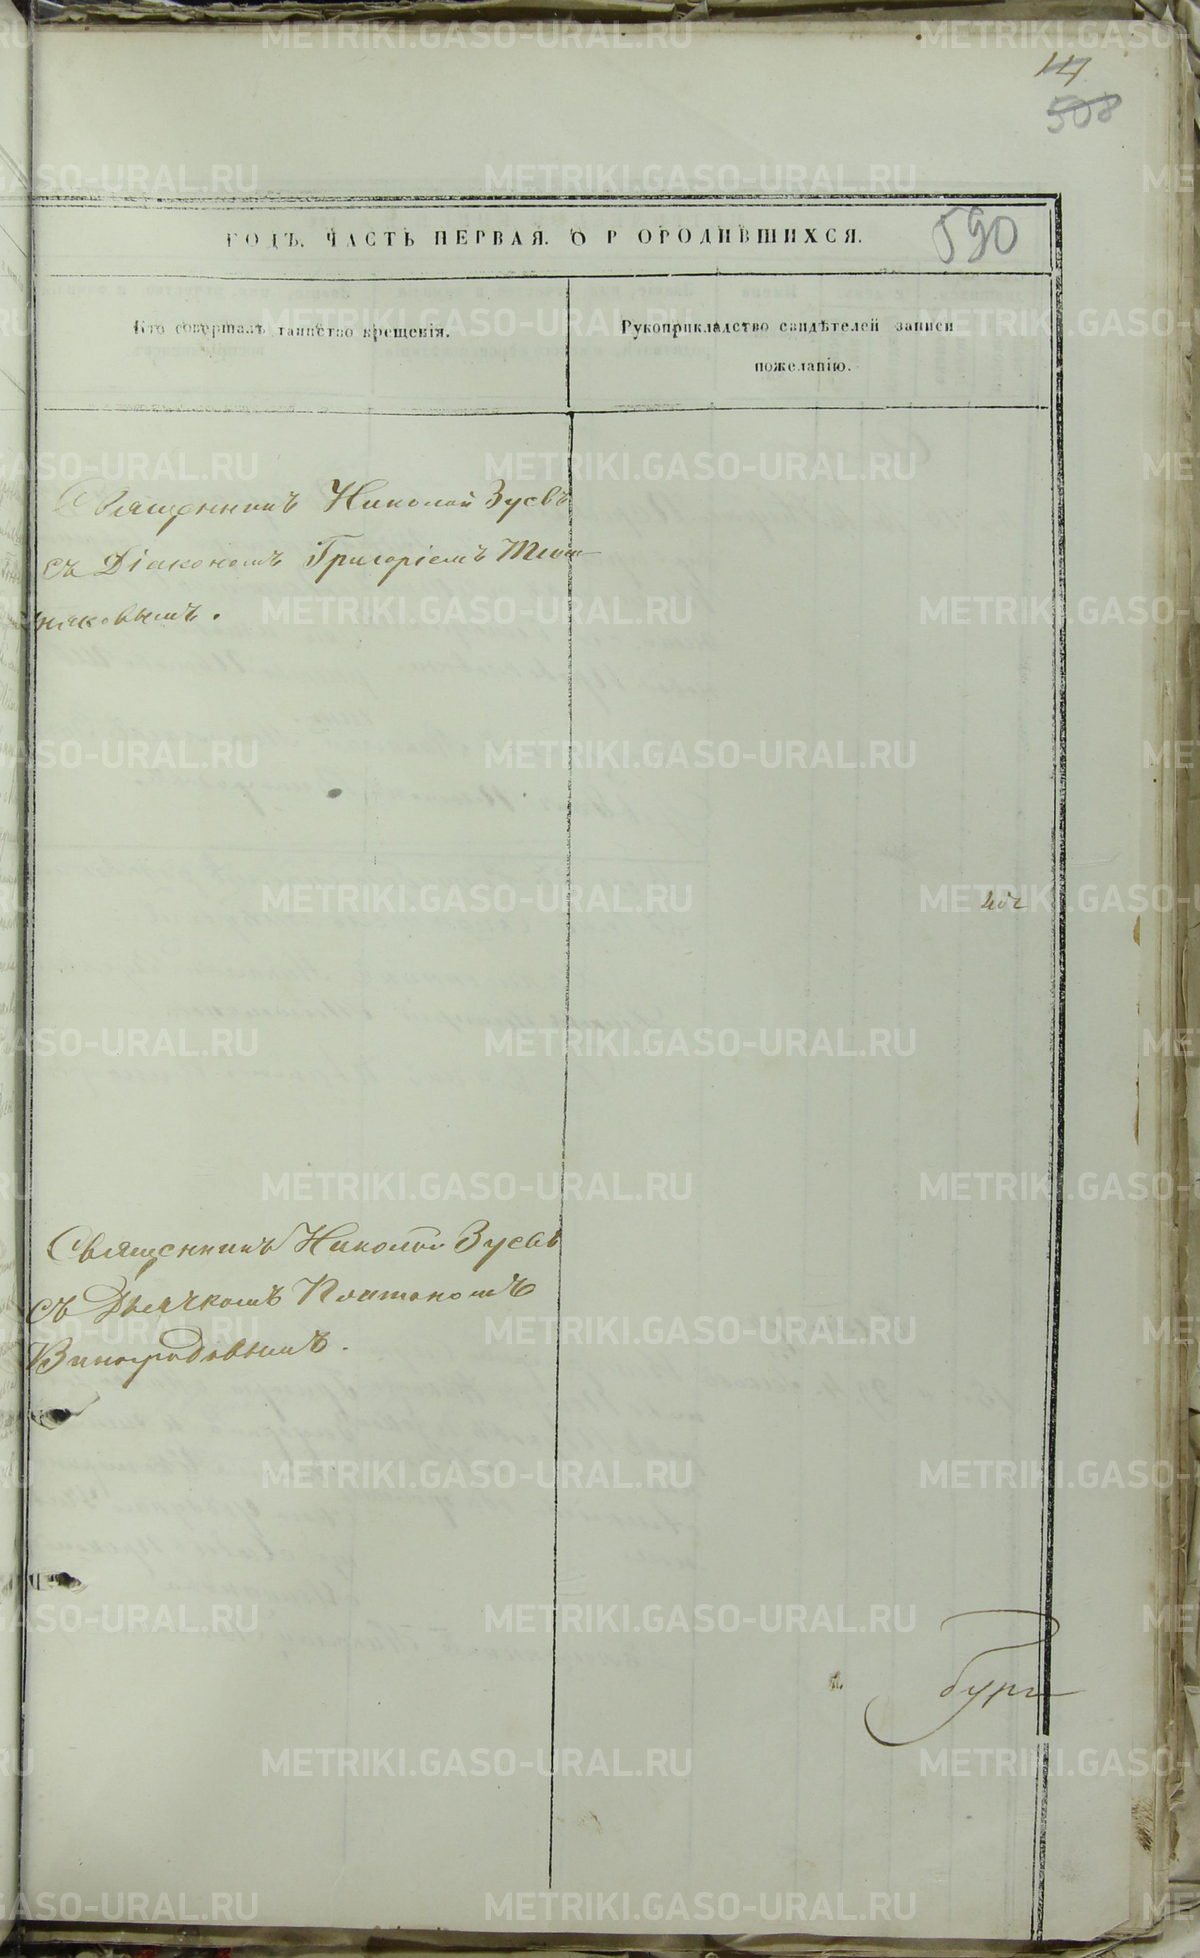 508
590
ГОДЪ. ЧАСТЬ ПЕРВАЯ. О Р ОРОДИВШИХСЯ.
Кто совершалъ таинство крещенія.
Рукоприкладство свидѣтелей записи
пожеланію.
Священникъ Николай Зуевъ
съ Діакономъ Григоріемъ
Священникъ Николай Зуевъ
съ Дьячкомъ Платономъ
Виноградовымъ.
бургс
METRIKI.GASO-URAL.RU